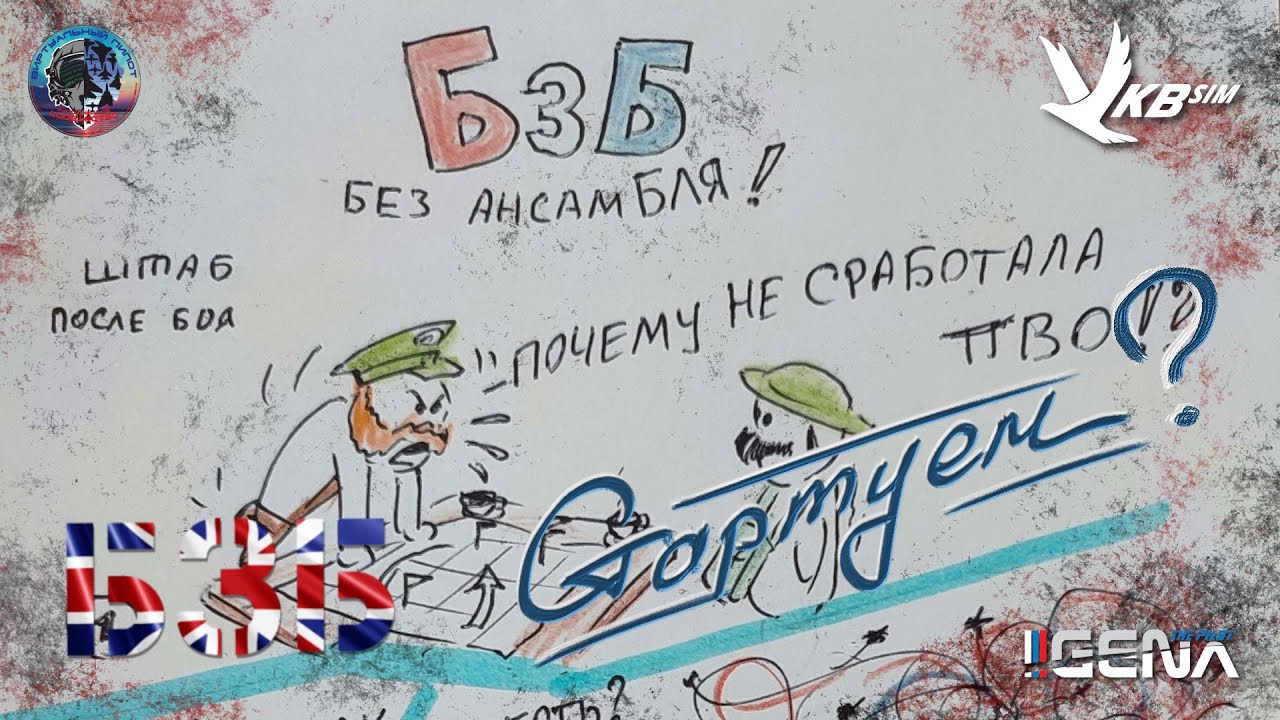 ВИРТУАЛЬНЫЙ ПИЛОТ
VKB SIM
БЗБ
БЕЗ АНСАМБЛЯ!
ШТАБ
ПОСЛЕ БОЯ
ПОЧЕМУ НЕ СРАБОТАЛА
ПВО!?
Стартуем?
БЗБ
THE PILOT
GENA